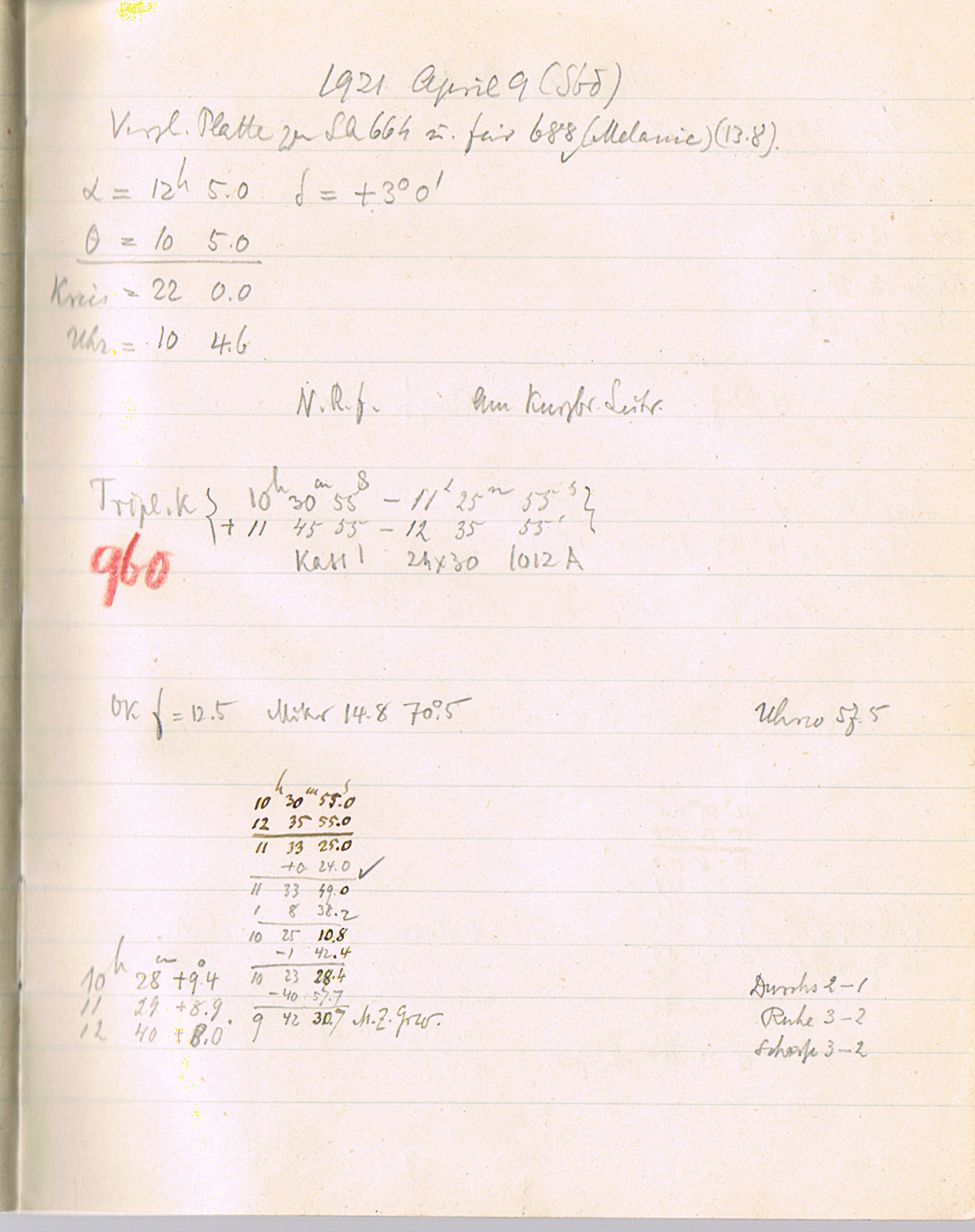 1921 April 9 (Sbd)
Vergl. Platte zu u. für 688 (Melanie) (13.8).
α = 12h 5.0 δ = +3°0'
θ = 10 5.0
Kreis = 22 0.0
Uhr = 10 4.6
N.R.f. am Kurzbr. Leitr.
Tripl. K } 10h 30m 55s – 11h 25m 55s }
+ 11 45 55 – 12 35 55s
960
Kass 1 24x30 1012 A
OK f = 12.5 Mikr 14.8 70°.5 Uhrso 57.5
10h 30m 55.s0
12 35 55.0
11 33 25.0
+0 24.0 ✓
11 33 49.0
1 8 38.2
10 25 10.8
-1 42.4
10h 28m +9°.4 10 23 28.4 Durchs 2–1
-40 57.7
11 29 +8.9 9 42 30.7 M.Z. Grw. Ruhe 3–2
12 40 +8.0 Schärfe 3–2